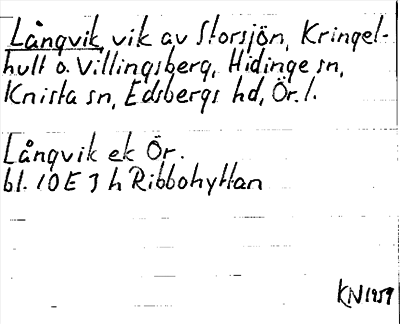 Långvik, vik av Storsjön, Kringel-
hult o. Villingsberg, Hidinge sn,
Knista sn, Edsbergs hd, Ör. l.
Långvik ek Ör.
bl. 10E 3 h Ribbohyttan
KN 1959